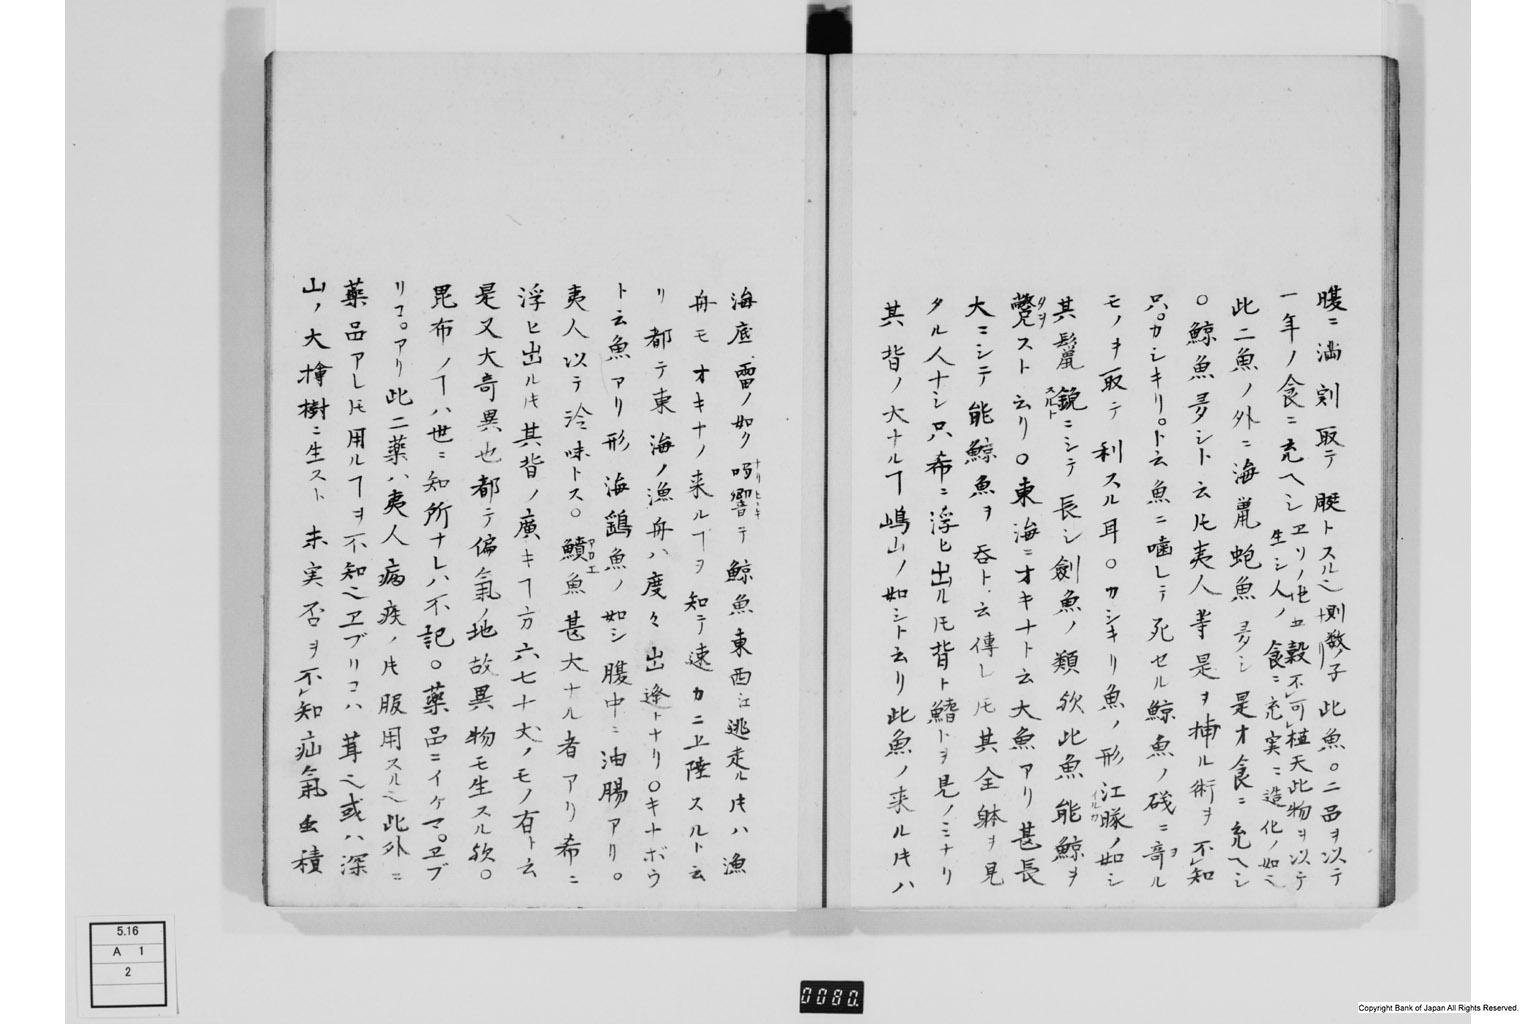 腹ニ満則取テ腴トスル也則数ノ子ナリ此魚〇二品ヲ以テ
一年ノ食ニ充ヘシヱソノ地五穀不可植天此物ヲ以テ
生シ人ノ食ニ充実ニ造化ノ如也
此二魚ノ外ニ海鼠鮑魚多シ是才食ニ充ヘシ
〇鯨魚多シト云圧夷人等是ヲ捕ル術ヲ不レ知
只カシキリト云魚ニ噛レテ死セル鯨魚ノ磯ニ寄ヲル
モノヲ取テ利スル耳〇カシキリ魚ノ形江豚イルカノ如シ
其鬣鋭スルトニシテ長シ劍魚ノ類欤此魚能鯨ヲ
斃タヲスト云リ〇東海ニオキナト云大魚アリ甚長
大ニシテ能鯨魚ヲ呑ト云傳レ圧其全躰ヲ見
タル人ナシ只希ニ浮ヒ出ル圧背ト鰭トヲ見ノミナリ
其背ノ大ナルヿ嶋山ノ如シト云リ此魚ノ来ル片ハ
海底雷ノ如ク鳴響ナリヒヽキテ鯨魚東西江逃走ル片ハ漁
舟モオキナノ来ルヿヲ知テ速カニ上陸スルト云
リ都テ東海ノ漁舟ハ度々出逢トナリ〇キナボウ
ト云魚アリ形海鷂魚ノ如シ腹中ニ油腸アリ〇
夷人以テ冷味トス〇鱝アロエ魚甚大ナル者アリ希ニ
浮ヒ出ル片其背ノ廣キヿ方六七十丈ノモノ有ト云
是又大奇異也都テ偏氣ノ地故異物モ生スル欤〇
毘布ノヿハ世ニ知所ナレハ不記〇藥品ニイケマ〇ヱブ
リコ〇アリ此二薬ハ夷人病疾ノ片服用スル也此外ニ
藥品アレ圧用ルヿヲ不知也ヱブリコハ茸也或ハ深
山ノ大檜樹ニ生スト未実否ヲ不レ知疝氣虫積
5.16
A 1
2
0080.
Copyright Bank of Japan All Rights Reserved.